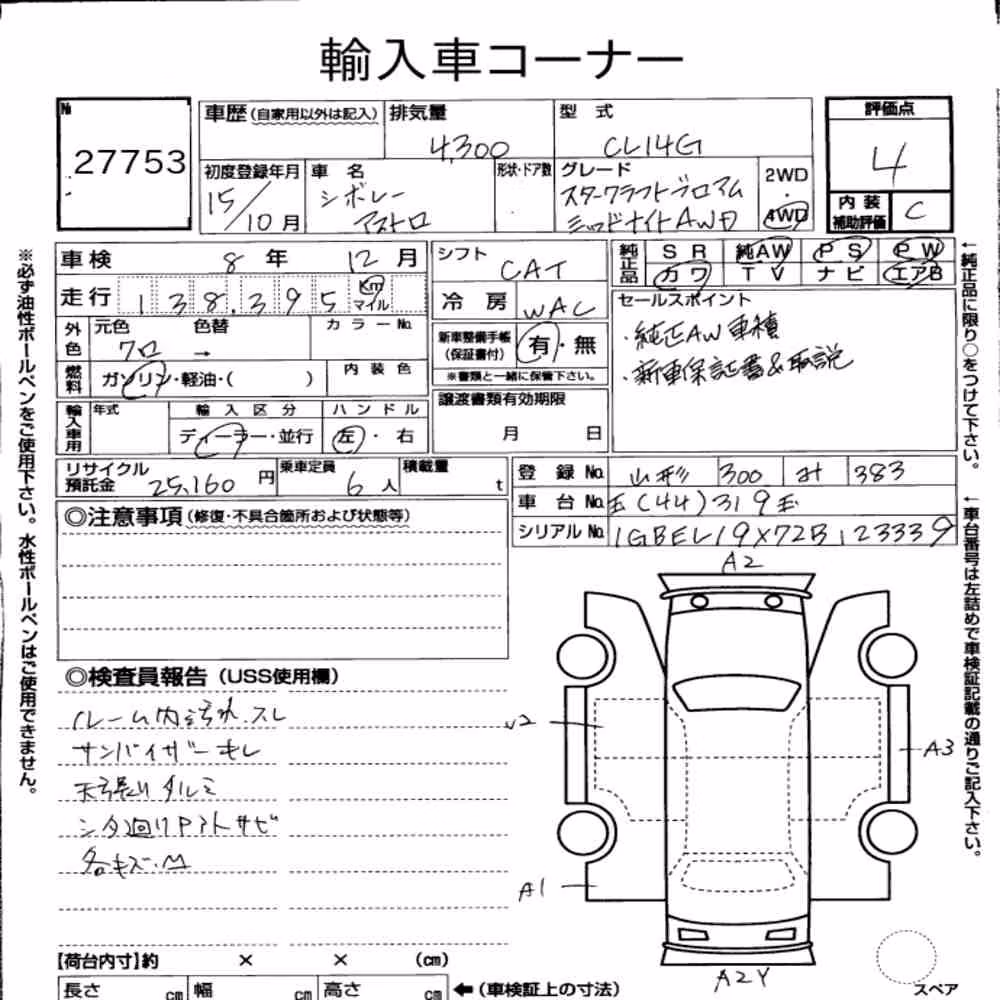 輸入車コーナー
№ 27753
車歴(自家用以外は記入) 排気量 4,300 型式 CL14G
評価点 4
初度登録年月 15/10月 車名 シボレー アストロ 形状・ドア数 グレード スタークラフトブロアム ミッドナイトAWD 2WD・4WD
内装補助評価 C
車検 8年 12月 シフト CAT
純正品 SR 純AW PS PW
カワ TV ナビ エアB
走行 138,395 Km マイル 冷房 WAC
セールスポイント
・純正AW車積
・新車保証書&取説
外色 元色 クロ 色替 → カラーNo. 新車整備手帳(保証書付) 有・無
※書類と一緒に保管下さい。
燃料 ガソリン・軽油・( ) 内装色
譲渡書類有効期限 月 日
輸入車用 年式 輸入区分 ディーラー・並行 ハンドル 左・右
リサイクル預託金 25,160円 乗車定員 6人 積載量 t
登録No. 山形 300 383
車台No. (44)319
シリアルNo. 1GBEL19X72B123339
◎注意事項(修復・不具合箇所および状態等)
◎検査員報告(USS使用欄)
ルーム内汚れ.スレ
サンバイザーキレ
天張りタルミ
シタ廻りPアトサビ
各キズ.M
A2
A3
A1
A2Y
スペア
【荷台内寸】約 × × (cm)
長さ cm 幅 cm 高さ cm ←(車検証上の寸法)
※必ず油性ボールペンをご使用下さい。水性ボールペンはご使用できません。
←純正品に限り○をつけて下さい。
←車台番号は左詰めで車検証記載の通りご記入下さい。